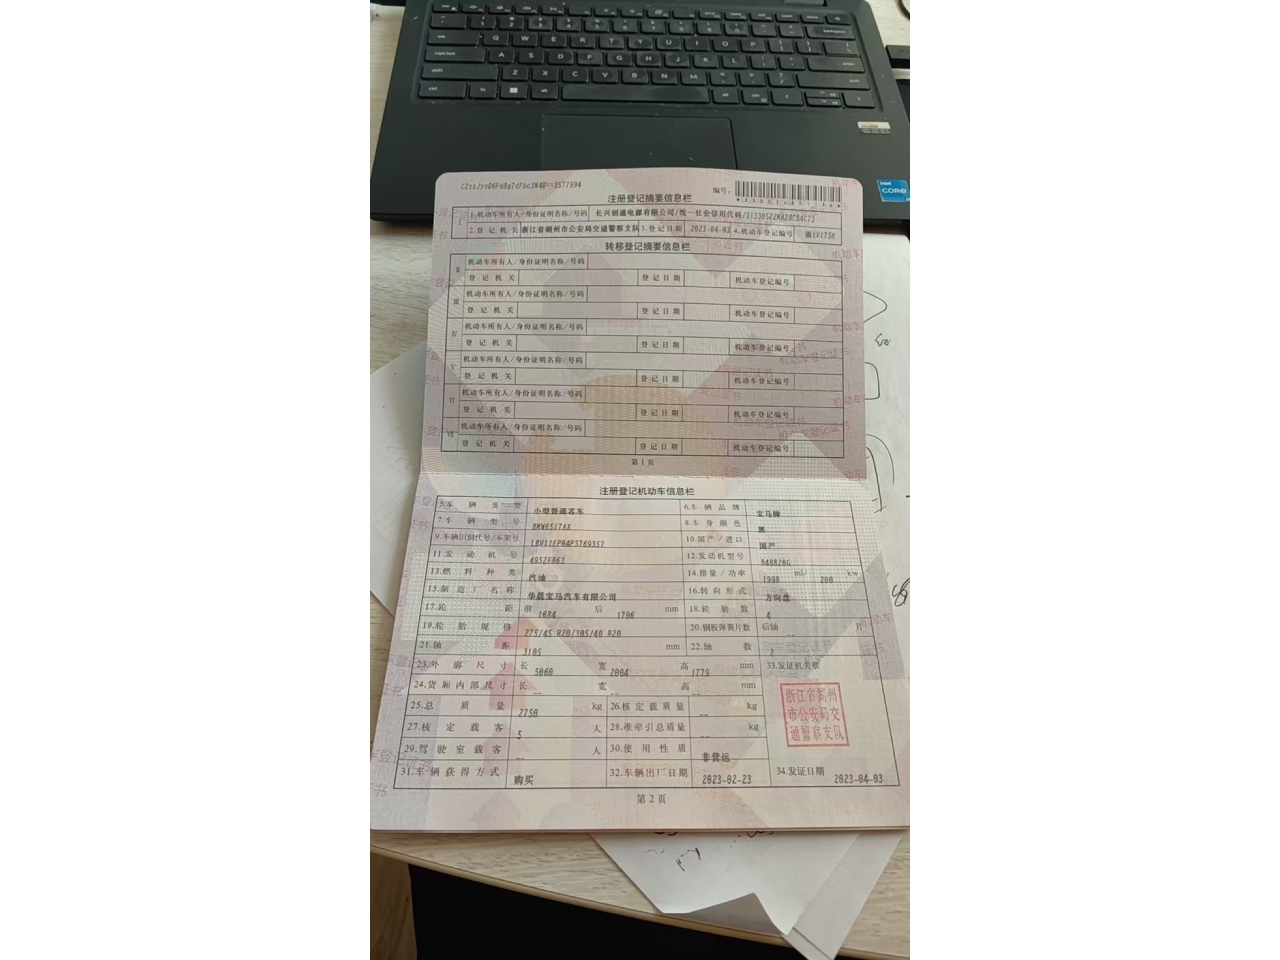 编号:
注册登记摘要信息栏
I 1.机动车所有人/身份证明名称/号码 长兴创通电源有限公司/统一社会信用代码/
2.登记机关 浙江省湖州市公安局交通警察支队 3.登记日期 2023-04-03 4.机动车登记编号
转移登记摘要信息栏
II 机动车所有人/身份证明名称/号码
登记机关 登记日期 机动车登记编号
III 机动车所有人/身份证明名称/号码
登记机关 登记日期 机动车登记编号
IV 机动车所有人/身份证明名称/号码
登记机关 登记日期 机动车登记编号
V 机动车所有人/身份证明名称/号码
登记机关 登记日期 机动车登记编号
VI 机动车所有人/身份证明名称/号码
登记机关 登记日期 机动车登记编号
VII 机动车所有人/身份证明名称/号码
登记机关 登记日期 机动车登记编号
第1页
注册登记机动车信息栏
5.车辆类型 小型普通客车 6.车辆品牌 宝马牌
7.车辆型号 BMW6517AX 8.车身颜色 黑
9.车辆识别代号/车架号 10.国产/进口 国产
11.发动机号 12.发动机型号 B48B20G
13.燃料种类 汽油 14.排量/功率 1998 ml/ 200 kw
15.制造厂名称 华晨宝马汽车有限公司 16.转向形式 方向盘
17.轮距 前 1684 后 1706 mm 18.轮胎数 4
19.轮胎规格 275/45 R20/305/40 R20 20.钢板弹簧片数 后轴 -- 片
21.轴距 3105 mm 22.轴数 2
23.外廓尺寸 长 5060 宽 2004 高 1779 mm 33.发证机关章
24.货厢内部尺寸 长 -- 宽 -- 高 -- mm
浙江省湖州
市公安局交
通警察支队
25.总质量 2750 kg 26.核定载质量 -- kg
27.核定载客 5 人 28.准牵引总质量 -- kg
29.驾驶室载客 -- 人 30.使用性质 非营运
31.车辆获得方式 购买 32.车辆出厂日期 2023-02-23 34.发证日期 2023-04-03
第2页
intel
CORE